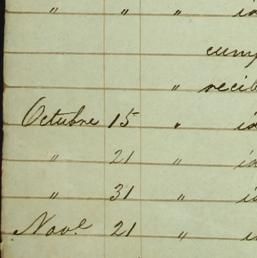 " " "
cump
" recib
Octubre 15 " id
" 21 " id
" 31 " id
Nov.e 21 "